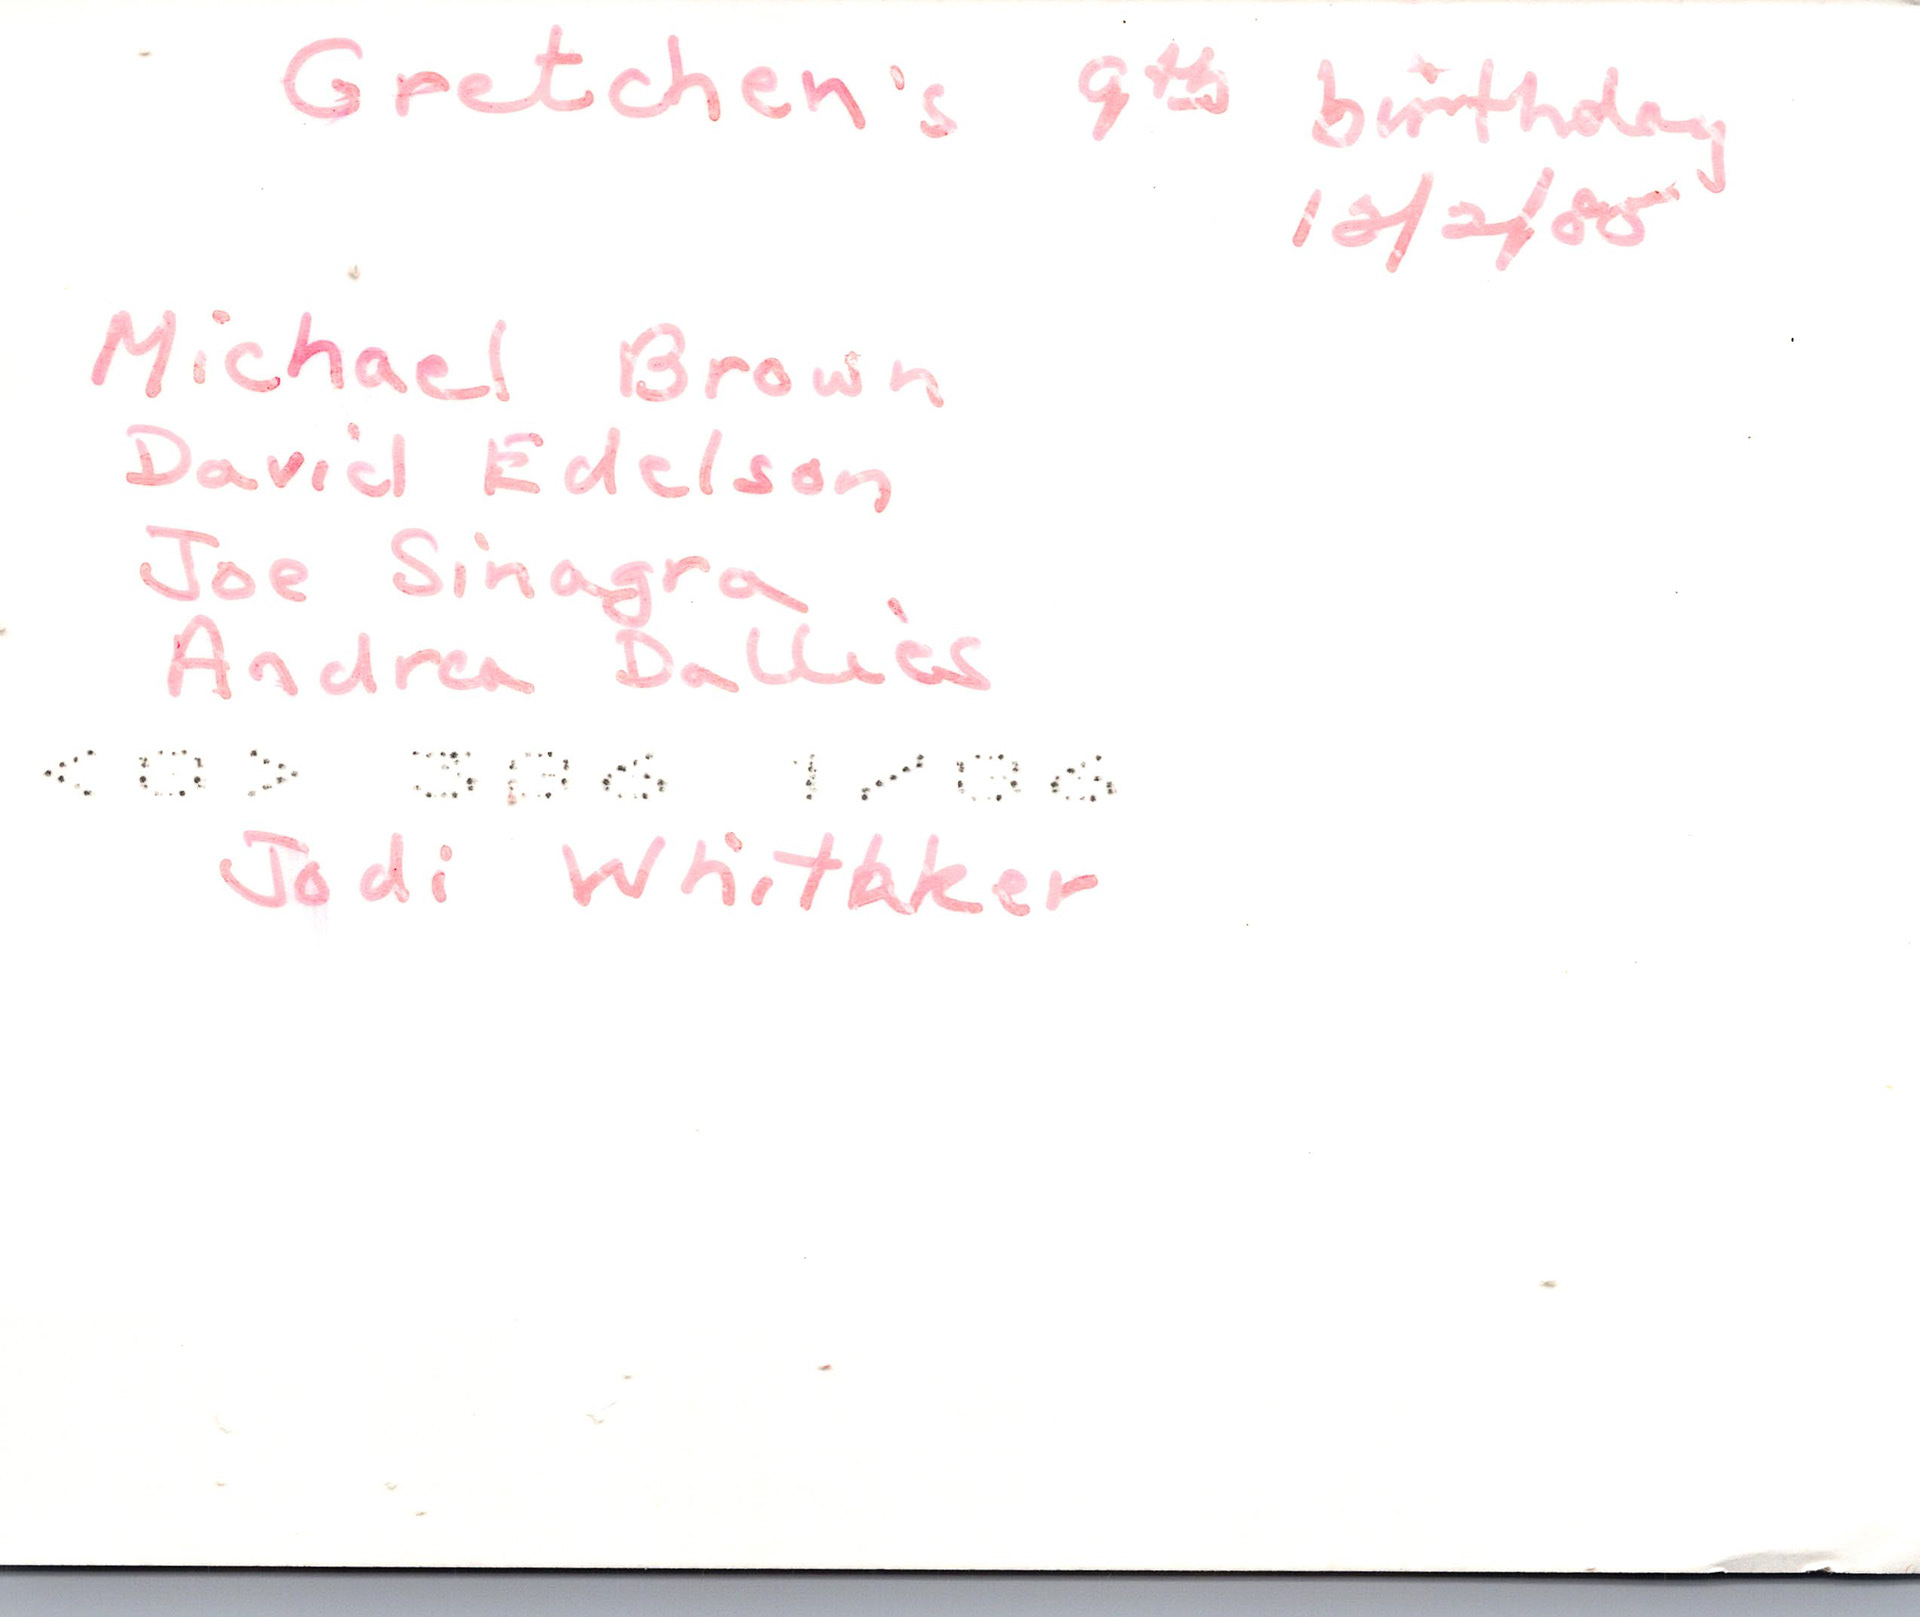 Gretchen's 9th birthday
12/2/85
Michael Brown
David Edelson
Joe Sinagra
Andrea Dallies
<0> 306 1/86
Jodi Whittaker